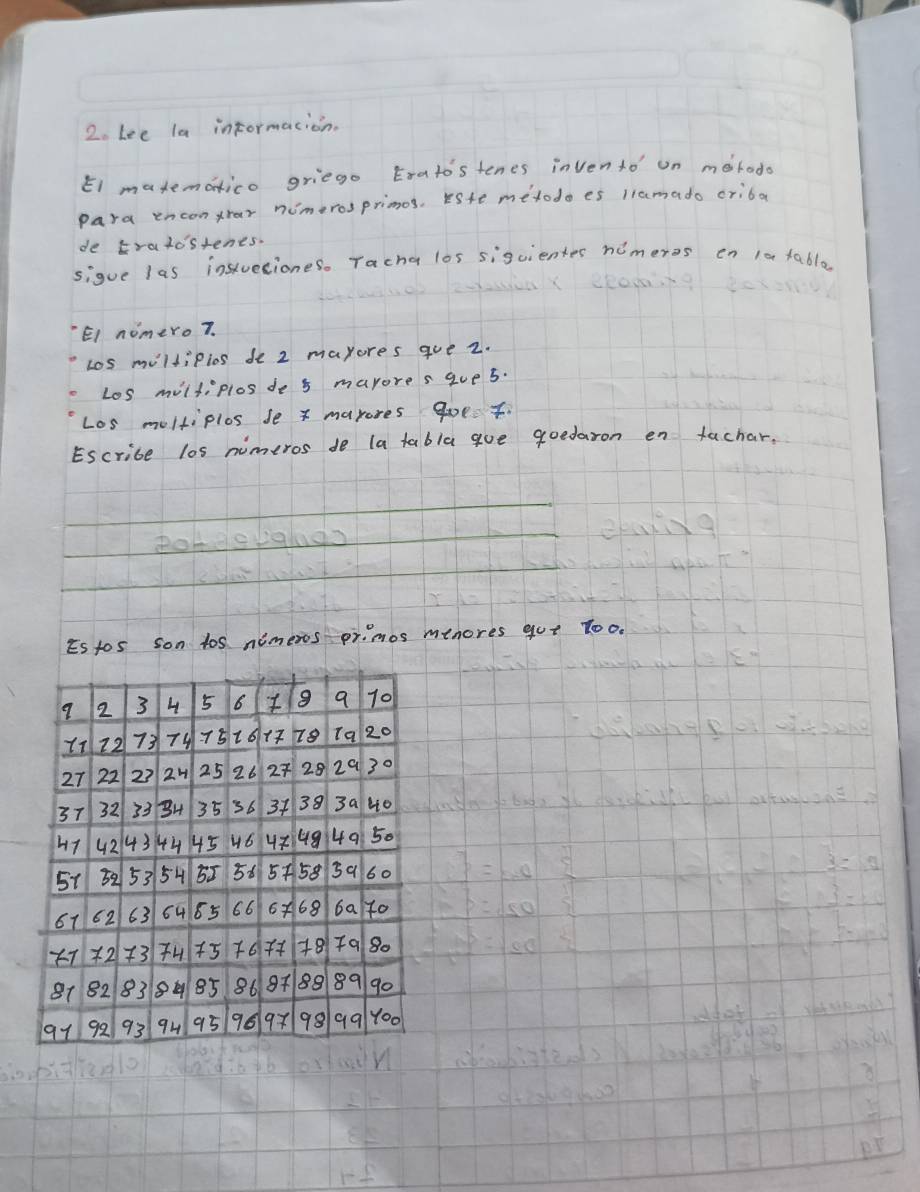 2. Lee la información.
El matemático griego Eratóstenes inventó un método
para encontrar números primos. Este método es llamado criba
de Eratóstenes.
sigue las instrucciones. Tacha los siguientes números en la tabla.
• El número 1.
• Los múltiplos de 2 mayores que 2.
• Los múltiplos de 5 mayores que 5.
• Los moltiplos de 7 mayores que 7.
Escribe los números de la tabla que quedaron en tachar.
Estos son los números primos menores que 100.
1 2 3 4 5 6 7 8 9 10
11 12 13 14 15 16 17 18 19 20
21 22 23 24 25 26 27 28 29 30
31 32 33 34 35 36 37 38 39 40
41 42 43 44 45 46 47 48 49 50
51 52 53 54 55 56 57 58 59 60
61 62 63 64 65 66 67 68 69 70
71 72 73 74 75 76 77 78 79 80
81 82 83 84 85 86 87 88 89 90
91 92 93 94 95 96 97 98 99 100